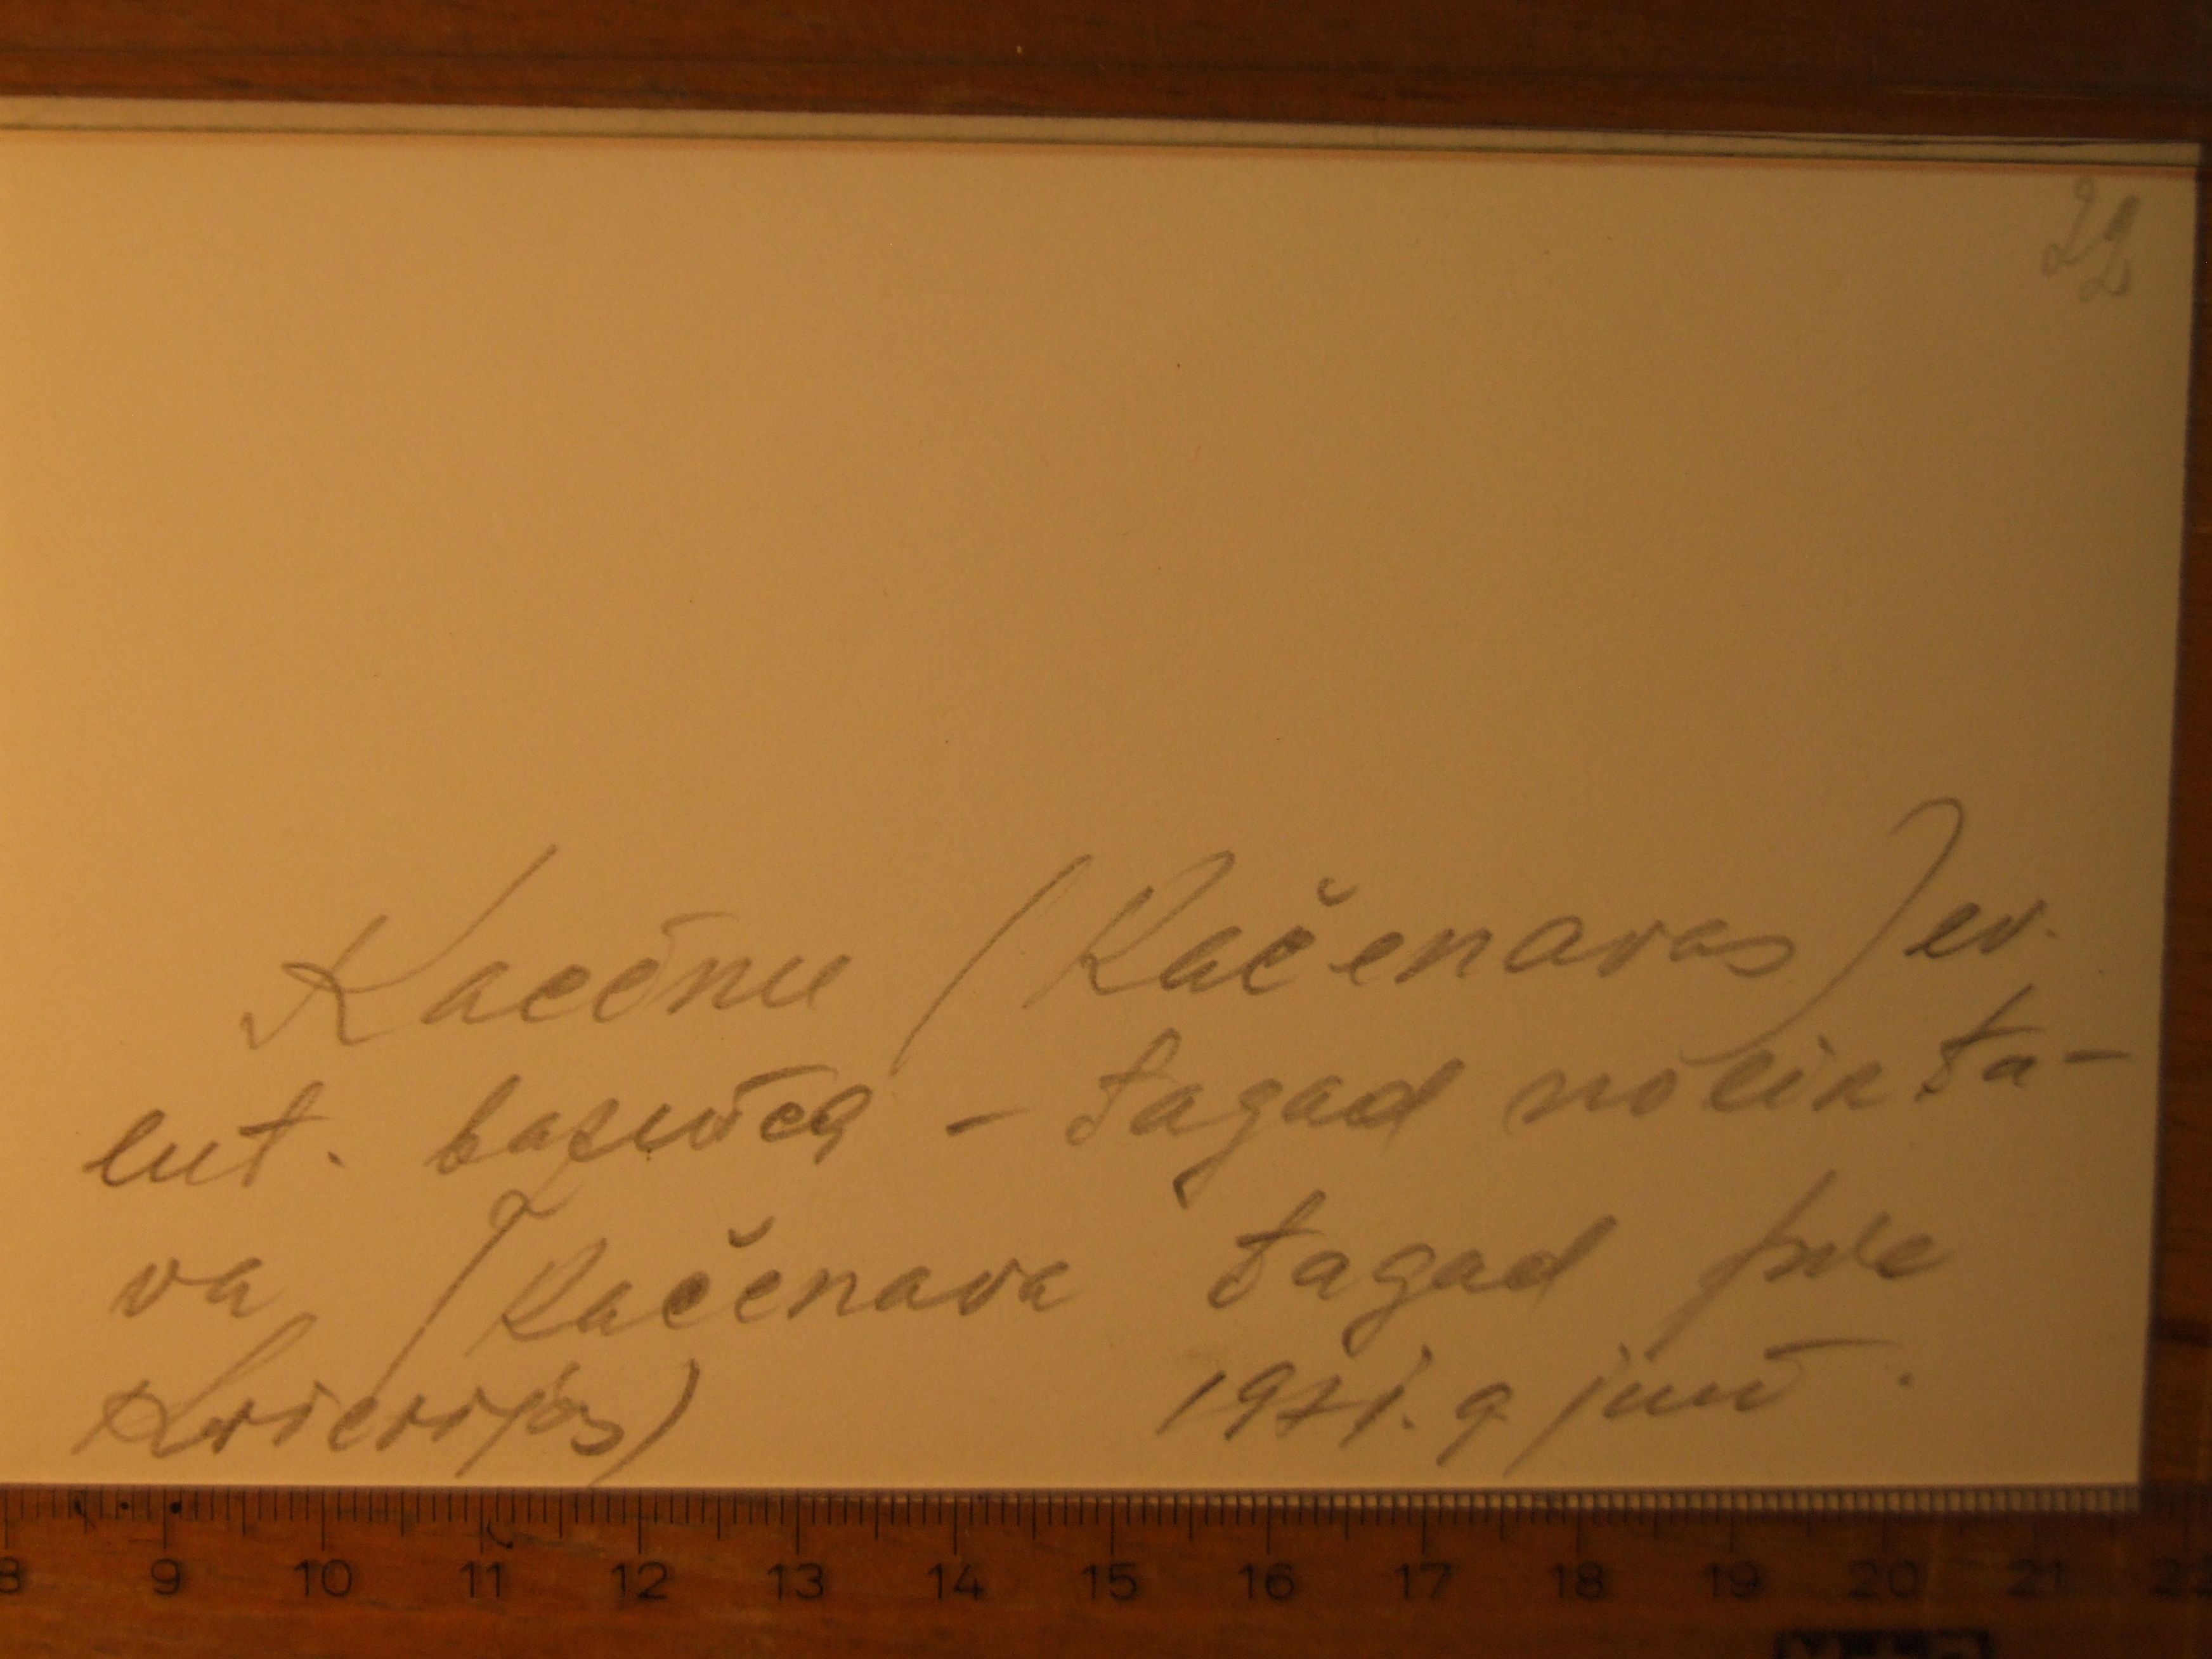 22
Kacēnu (Kačenavas) ev.
lut. baznīca - tagad nolikta-
va (Kačenava tagad pie
Krievijas) 1971. 9 jūnī.
8 9 10 11 12 13 14 15 16 17 18 19 20 21 22